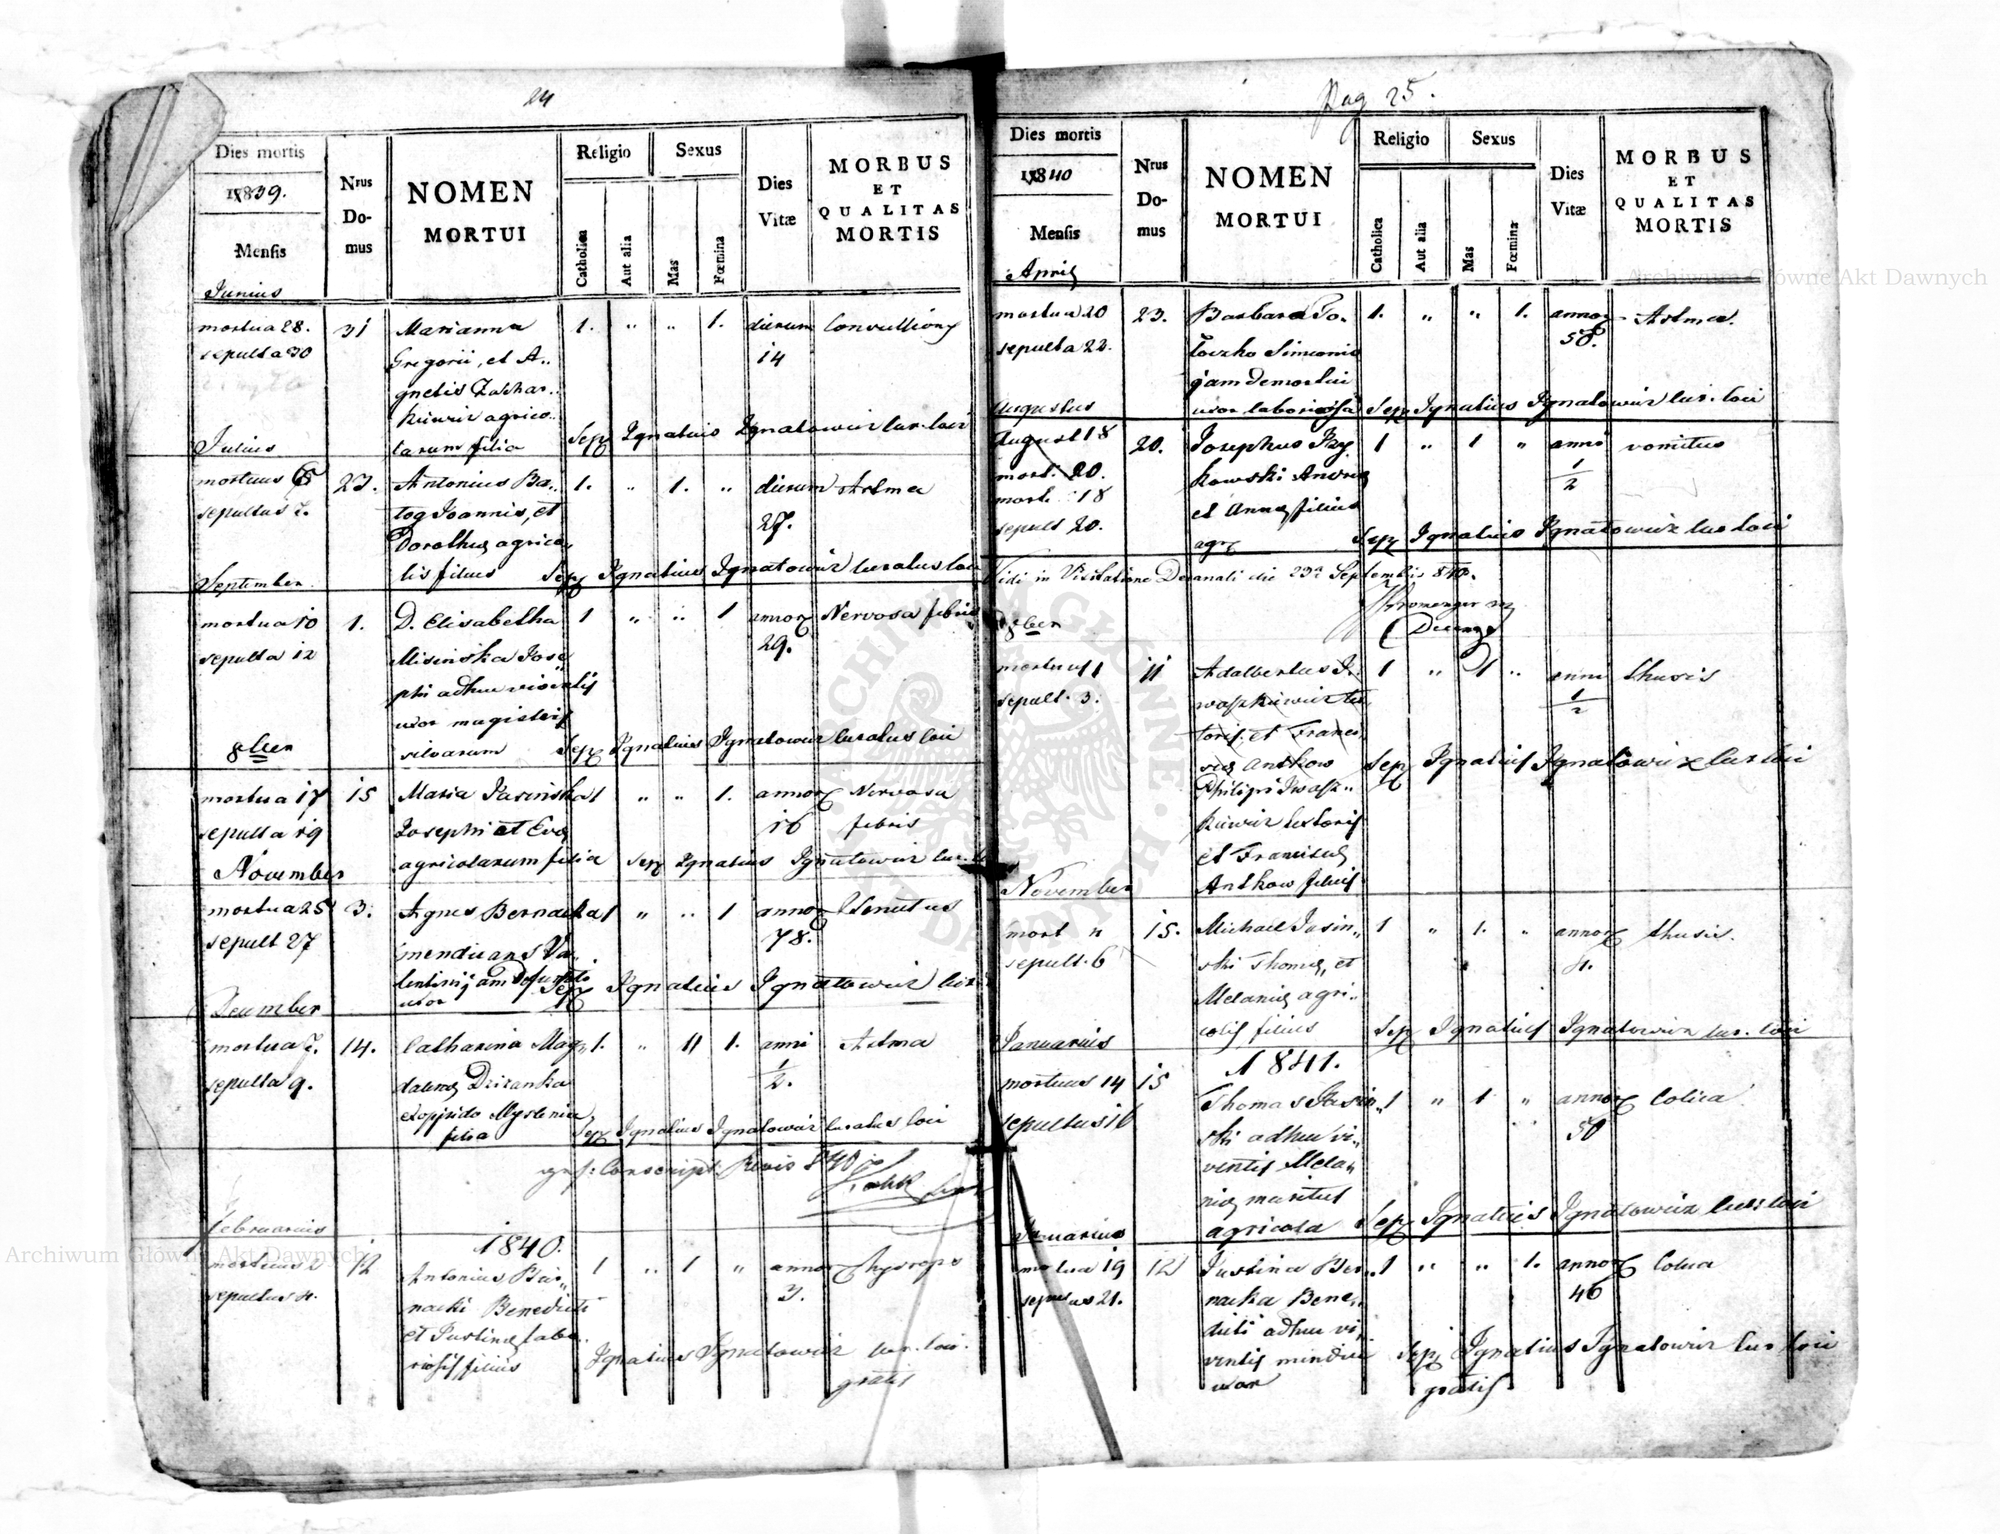 24
Dies mortis
1839.
Mensis
Nrus Domus
NOMEN MORTUI
Religio
Catholica
Aut alia
Sexus
Mas
Fœmina
Dies Vitæ
MORBUS ET QUALITAS MORTIS
Junius
mortua 28. 31 Marianna 1. " " 1. dierum Convulsiones
sepulta 30 Gregorii, et A.. 14
gnetis Zachar..
kiewicz agrico..
Julius tarum filia Sep Ignatius Ignatowicz Cur. loci
mortuus 27. Antonius Ba.. 1. " 1. " dierum Astma
sepultus 7. tog Joannis, et 27.
Dorotheæ agrico
September lis filius Sep Ignatius Ignatowicz Curatus loci
mortua 10 1. D. Elisabetha 1 " " 1 annor Nervosa febris
sepulta 12 Misinska Jose 29.
phi adhuc viventis
uxor magistri
8ber silvarum Sep Ignatius Ignatowicz Curatus loci
mortua 17 15 Maria Jasinska 1 " " 1. annor Nervosa
sepulta 19 Josephi et Evæ 16 febris
agricolarum filia Sep Ignatius Ignatowicz Cur.
November
mortua 25 3. Agnes Bernacka 1 " " 1 annor Senectus
sepult 27 mendicans Va.. 78.
lentini jam defuncti
uxor Sep Ignatius Ignatowicz Cur
December
mortua 7. 14. Catharina Mag 1. " 11 1. anni Astma
sepulta 9. dalenæ Dzizanka 1/2.
ex oppido Myslenia
filia Sep Ignatius Ignatowicz Curatus loci
Conscript. Revis 840
Februarius
1840.
mortuus 2 12 Antonius Ber 1 " 1 " annor hyrops
sepultus 4. nacki Benedicti 3.
et Justinæ labo..
riosis filius Ignatius Ignatowicz Cur. loci.
gratis
Pag 25.
Dies mortis
1840
Mensis
Nrus Domus
NOMEN MORTUI
Religio
Catholica
Aut alia
Sexus
Mas
Fœmina
Dies Vitæ
MORBUS ET QUALITAS MORTIS
April
mortua 20 23. Barbara Po. 1. " " 1. annor Astma.
sepulta 22. toczko Simeonis 58.
jam demortui
Augustus uxor laboriosa Sep Ignatius Ignatowicz Cur. loci
August 18 20. Josephus 1 " 1 " anni vomitus
mort. 20. kowski Andreæ 1/2
mort. 18 et Annæ filius
sepult 20. agr Sep Ignatius Ignatowicz Cur loci
Vidi in Visitatione Decanali die 23a Septembris 840.
8ber
mortuus 1 11 Adalbertus I. 1 " 1 " anni thusis
sepult. 3. waszkiewicz tex 1/2
toris, et Francis
cæ Antkow Sep Ignatius Ignatowicz Cur loci
Philipi Iwasz"
kiewicz textoris
et Franciscæ
Antkow filius
November
mort 4 15. Michael Jasin" 1 " 1. " annor thusis.
sepult. 6 ski Thomæ, et 4.
Melaniæ agri"
colis filius Sep Ignatius Ignatowicz Cur. loci
Januarius
1841.
mortuus 14 15 Thomas Jasin" 1 " 1 " annor Colica
sepultus 16 ski adhuc vi" 50
ventis Mela"
niæ maritus
agricola Sep Ignatius Ignatowicz Cur loci
Januarius
mortua 19 12 Justina Ber" 1 " " 1. annor Colica
sepultus 21. nacka Bene" 46
dicti adhuc vi"
ventis mendici Sep Ignatius Ignatowicz Cur loci
uxor gratis
Archiwum Główne Akt Dawnych
Archiwum Główne Akt Dawnych
ARCHIWUM GŁÓWNE AKT DAWNYCH